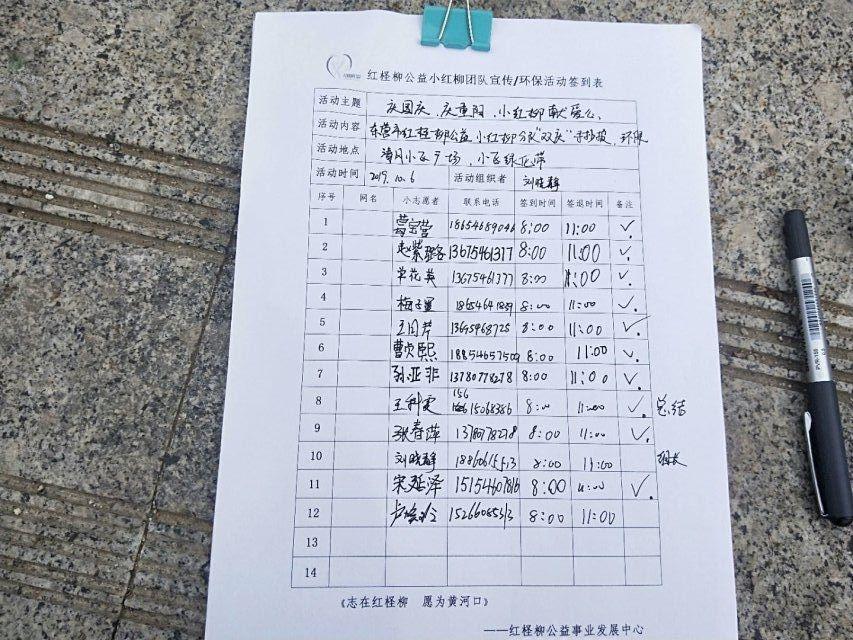 红柽柳公益小红柳团队宣传/环保活动签到表
活动主题 庆国庆、庆重阳、小红柳献爱心、
活动内容 东营市红柽柳公益小红柳分队"双庆"手抄报、环保
活动地点 清风小区广场、小区绿化带
活动时间 2019.10.6 活动组织者 刘晓静
序号 网名 小志愿者 联系电话 签到时间 签退时间 备注
1 18654689046 8:00 11:00 ✓.
2 赵紫璐 13675461317 8:00 11:00 ✓.
3 单花英 13675461377 8:00 11:00 ✓.
4 8:00 11:00 ✓.
5 8:00 11:00 ✓.
6 18854657509 8:00 11:00 ✓.
7 孙亚非 13780778278 8:00 11:00 ✓.
8 8:00 11:00 ✓. 总结
9 张春萍 8:00 11:00 ✓.
10 刘晓静 8:00 11:00 组长
11 宋延泽 15154607816 8:00 11:00 ✓.
12 8:00 11:00
13
14
《志在红柽柳 愿为黄河口》
——红柽柳公益事业发展中心